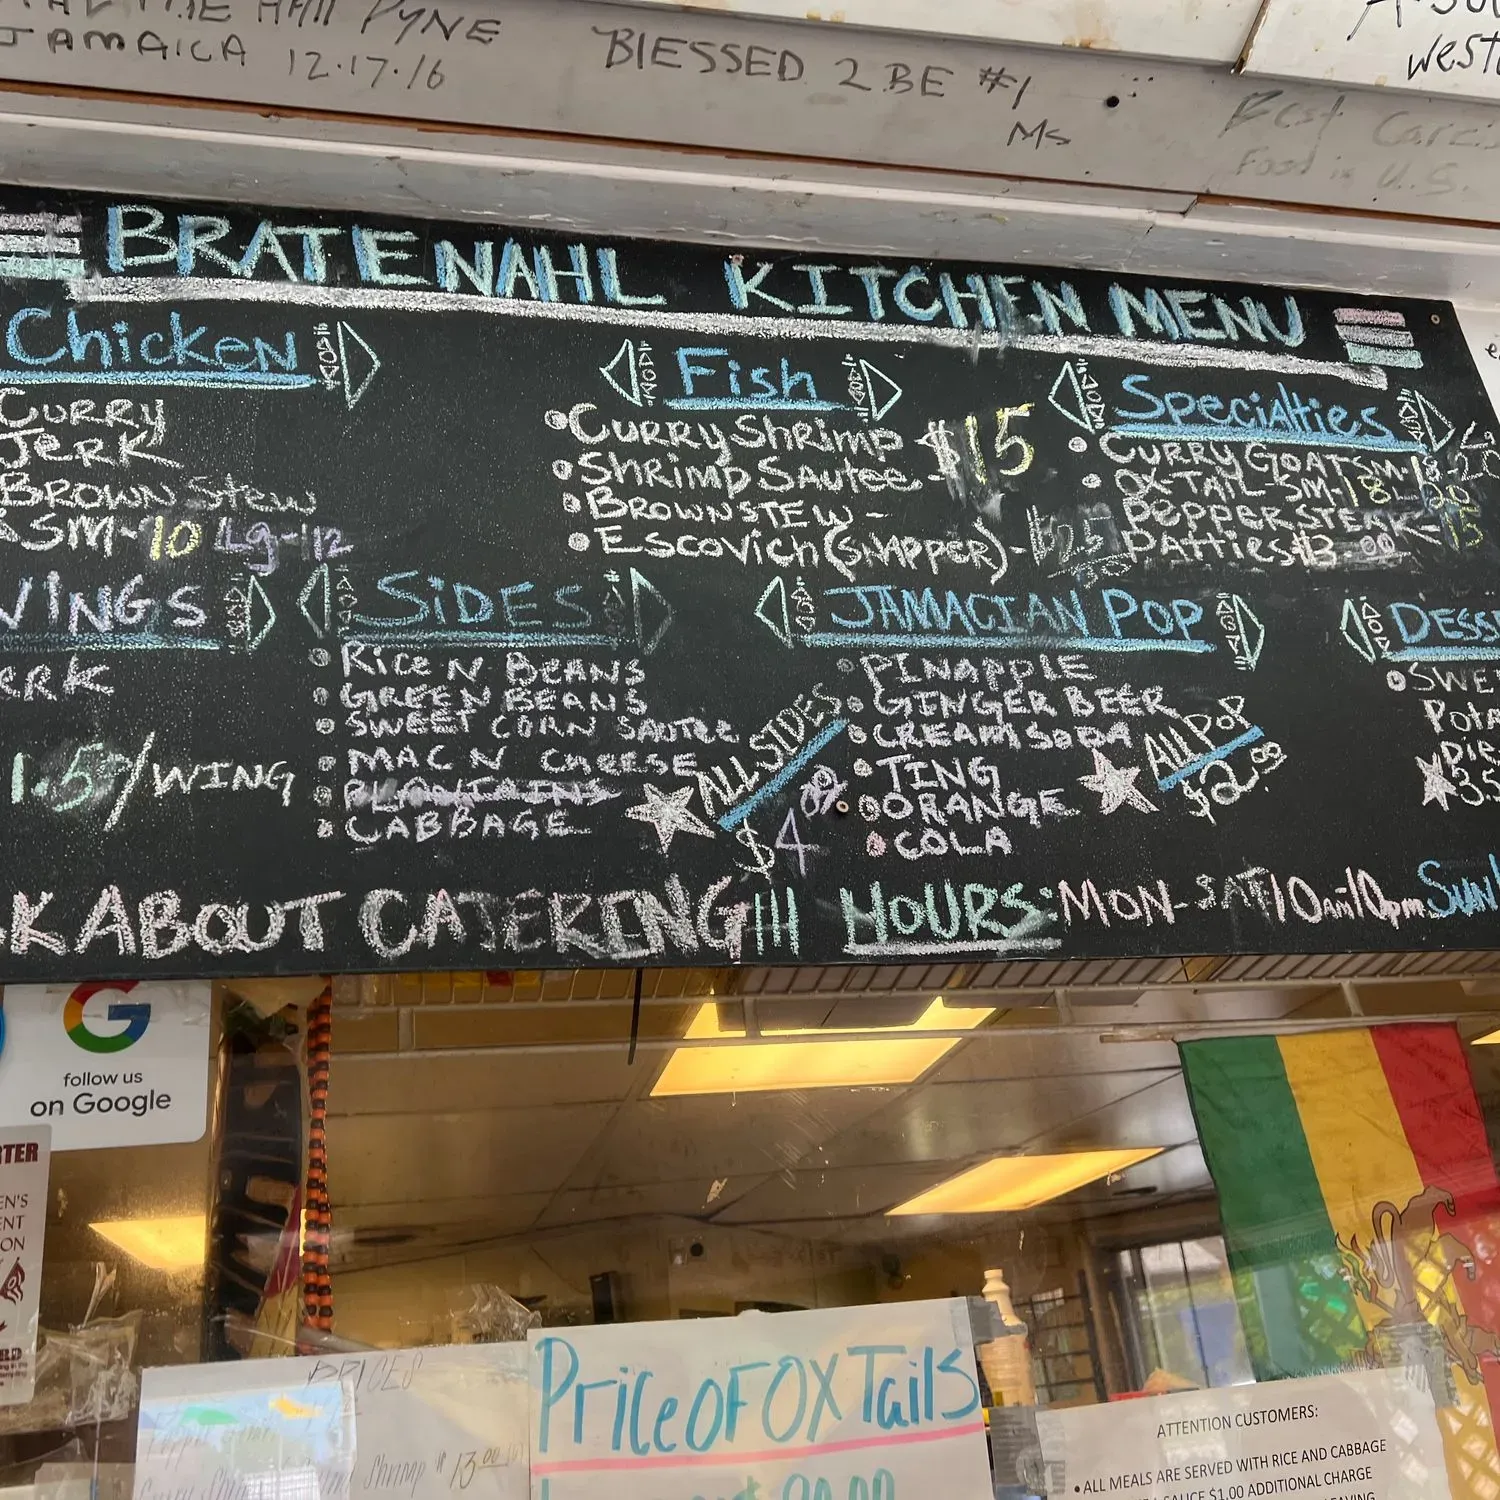 JAMAICA 12.17.16
BlESSED 2 BE #1
Ms
West
Best
Food in U.S.
BRATENAHL KITCHEN MENU
Chicken
CURRY
JERK
BROWN Stew
SM-10 Lg-12
Fish
CURRY Shrimp
Shrimp Sautee
$15
BROWNSTEW-
Escovich (SNAPPER)-$25
Specialties
CURRY GOAT SM-
OX-TAIL-SM-18 L
PEPPER STEAK-15
Patties $3.00
WINGS
JERK
1.50/WING
SiDES
Rice N BEANS
GREEN BEANS
SWEET CORN SAUTEE
MAC N CHEESE
PLANTAINS
CABBAGE
ALL SIDES
$4.00
JAMACIAN POP
PINAPPLE
GINGER BEER
CREAM SODA
TING
ORANGE
COLA
ALL POP
$2.99
DESSE
SWEE
Pota
Pie
3.5
K ABOUT CATERING!!! HOURS: MON-SAT 10am10pm SUN
G
follow us
on Google
RTER
EN'S
ENT
ON
PRICES
Shrimp $13.00
Price OF OX Tails
ATTENTION CUSTOMERS:
• ALL MEALS ARE SERVED WITH RICE AND CABBAGE
SAUCE $1.00 ADDITIONAL CHARGE